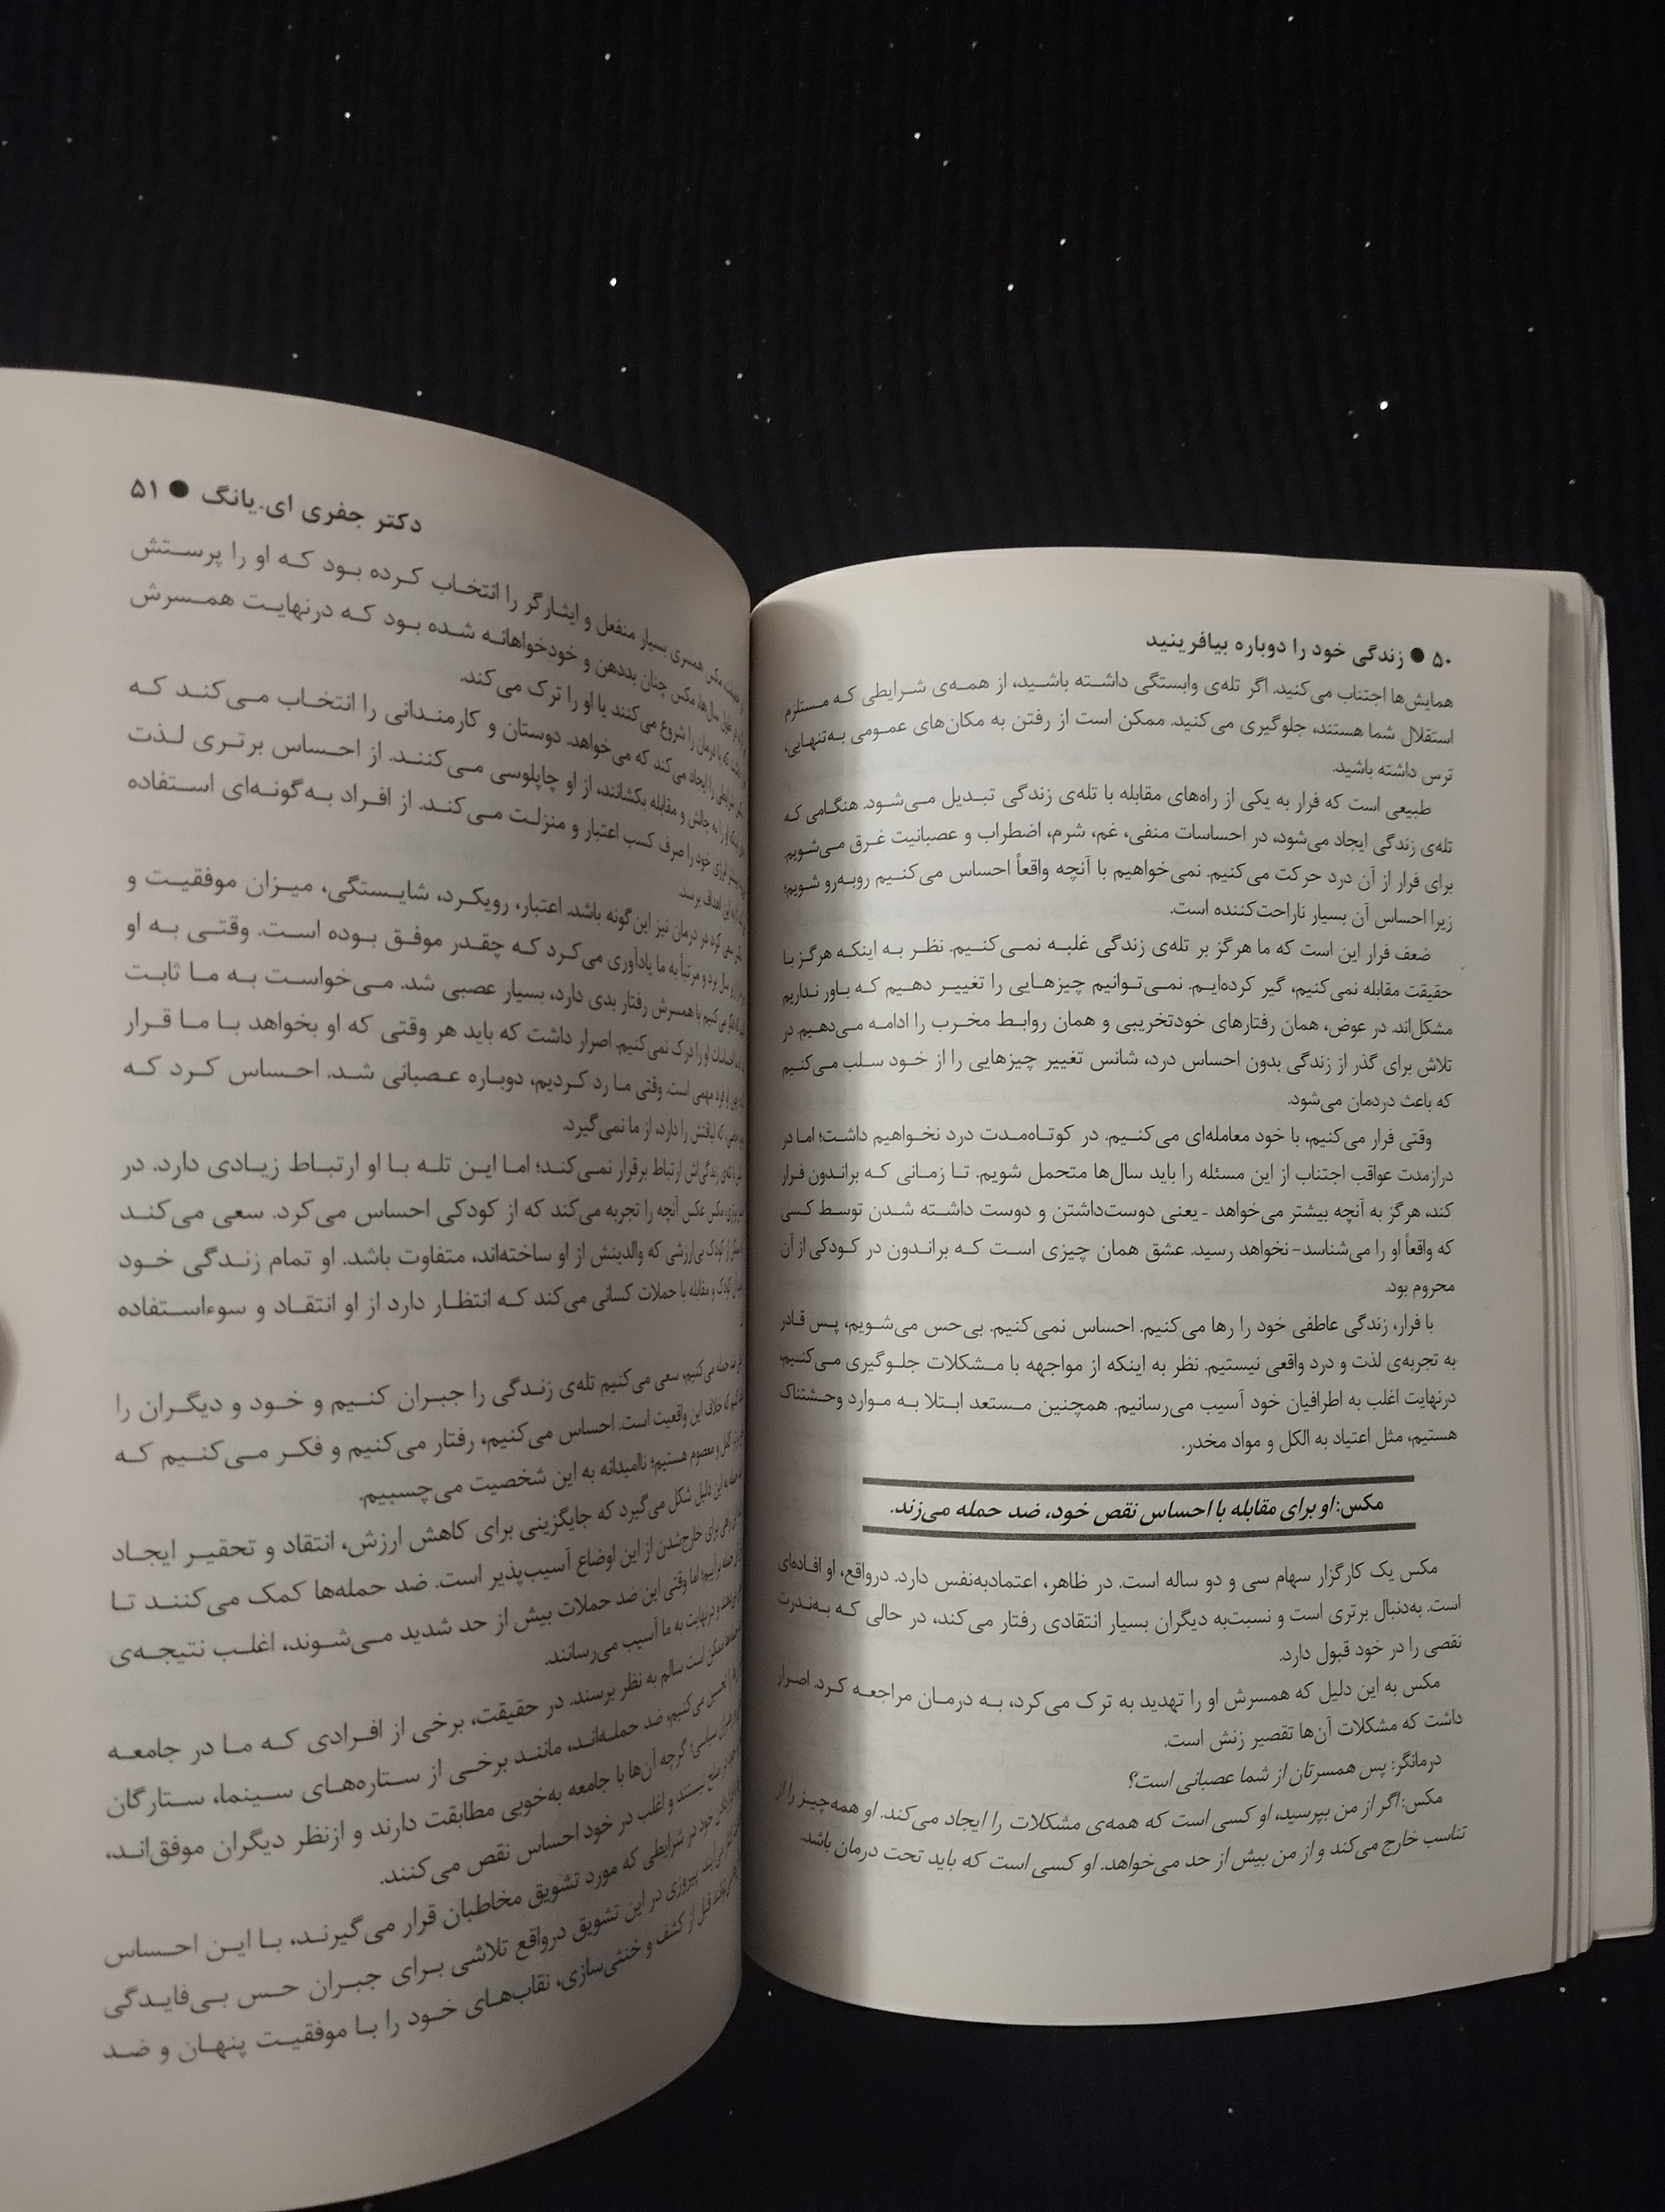 ۵۰ ● زندگی خود را دوباره بیافرینید
همایش‌ها اجتناب می‌کنید. اگر تله‌ی وابستگی داشته باشید، از همه‌ی شرایطی که مستلزم
استقلال شما هستند، جلوگیری می‌کنید. ممکن است از رفتن به مکان‌های عمومی به‌تنهایی،
ترس داشته باشید.
طبیعی است که فرار به یکی از راه‌های مقابله با تله‌ی زندگی تبدیل می‌شود. هنگامی که
تله‌ی زندگی ایجاد می‌شود، در احساسات منفی، غم، شرم، اضطراب و عصبانیت غرق می‌شویم.
برای فرار از آن درد حرکت می‌کنیم. نمی‌خواهیم با آنچه واقعاً احساس می‌کنیم روبه‌رو شویم؛
زیرا احساس آن بسیار ناراحت‌کننده است.
ضعف فرار این است که ما هرگز بر تله‌ی زندگی غلبه نمی‌کنیم. نظر به اینکه هرگز با
حقیقت مقابله نمی‌کنیم، گیر کرده‌ایم. نمی‌توانیم چیزهایی را تغییر دهیم که باور نداریم
مشکل‌اند. در عوض، همان رفتارهای خودتخریبی و همان روابط مخرب را ادامه می‌دهیم. در
تلاش برای گذر از زندگی بدون احساس درد، شانس تغییر چیزهایی را از خود سلب می‌کنیم
که باعث دردمان می‌شود.
وقتی فرار می‌کنیم، با خود معامله‌ای می‌کنیم. در کوتاه‌مدت درد نخواهیم داشت؛ اما در
درازمدت عواقب اجتناب از این مسئله را باید سال‌ها متحمل شویم. تا زمانی که براندون فرار
کند، هرگز به آنچه بیشتر می‌خواهد - یعنی دوست‌داشتن و دوست داشته شدن توسط کسی
که واقعاً او را می‌شناسد- نخواهد رسید. عشق همان چیزی است که براندون در کودکی از آن
محروم بود.
با فرار، زندگی عاطفی خود را رها می‌کنیم. احساس نمی‌کنیم. بی‌حس می‌شویم، پس قادر
به تجربه‌ی لذت و درد واقعی نیستیم. نظر به اینکه از مواجهه با مشکلات جلوگیری می‌کنیم،
درنهایت اغلب به اطرافیان خود آسیب می‌رسانیم. همچنین مستعد ابتلا به موارد وحشتناک
هستیم، مثل اعتیاد به الکل و مواد مخدر.
مکس: او برای مقابله با احساس نقص خود، ضد حمله می‌زند.
مکس یک کارگزار سهام سی و دو ساله است. در ظاهر، اعتمادبه‌نفس دارد. درواقع، او افاده‌ای
است. به‌دنبال برتری است و نسبت‌به دیگران بسیار انتقادی رفتار می‌کند، در حالی که به‌ندرت
نقصی را در خود قبول دارد.
مکس به این دلیل که همسرش او را تهدید به ترک می‌کرد، به درمان مراجعه کرد. اصرار
داشت که مشکلات آن‌ها تقصیر زنش است.
درمانگر: پس همسرتان از شما عصبانی است؟
مکس: اگر از من بپرسید، او کسی است که همه‌ی مشکلات را ایجاد می‌کند. او همه‌چیز را از
تناسب خارج می‌کند و از من بیش از حد می‌خواهد. او کسی است که باید تحت درمان باشد.
دکتر جفری ای.یانگ ● ۵۱
مکس همسری بسیار منفعل و ایثارگر را انتخاب کرده بود که او را پرستش
مکس چنان بددهن و خودخواهانه شده بود که درنهایت همسرش
درمان را شروع می‌کنند یا او را ترک می‌کند.
را ایجاد می‌کند که می‌خواهد. دوستان و کارمندانی را انتخاب می‌کند که
به چالش و مقابله بکشانند، از او چاپلوسی می‌کنند. از احساس برتری لذت
خود را صرف کسب اعتبار و منزلت می‌کند. از افراد به‌گونه‌ای استفاده
اهداف برسد.
سعی کرد در درمان نیز این‌گونه باشد. اعتبار، رویکرد، شایستگی، میزان موفقیت و
و مرتباً به ما یادآوری می‌کرد که چقدر موفق بوده است. وقتی به او
می‌کنیم با همسرش رفتار بدی دارد، بسیار عصبی شد. می‌خواست به ما ثابت
احساسات او را درک نمی‌کنیم. اصرار داشت که باید هر وقتی که او بخواهد با ما قرار
فرد مهمی است. وقتی ما رد کردیم، دوباره عصبانی شد. احساس کرد که
که لیاقتش را دارد، از ما نمی‌گیرد.
زندگی‌اش ارتباط برقرار نمی‌کند؛ اما این تله با او ارتباط زیادی دارد. در
مکس عکس آنچه را تجربه می‌کند که از کودکی احساس می‌کرد. سعی می‌کند
کودک بی‌ارزشی که والدینش از او ساخته‌اند، متفاوت باشد. او تمام زندگی خود
و مقابله با حملات کسانی می‌کند که انتظار دارد از او انتقاد و سوءاستفاده
حمله می‌کنیم، سعی می‌کنیم تله‌ی زندگی را جبران کنیم و خود و دیگران را
که خلاف این واقعیت است. احساس می‌کنیم، رفتار می‌کنیم و فکر می‌کنیم که
کامل و معصوم هستیم؛ ناامیدانه به این شخصیت می‌چسبیم.
به این دلیل شکل می‌گیرد که جایگزینی برای کاهش ارزش، انتقاد و تحقیر ایجاد
برای خارج‌شدن از این اوضاع آسیب‌پذیر است. ضد حمله‌ها کمک می‌کنند تا
اما وقتی این ضد حملات بیش از حد شدید می‌شوند، اغلب نتیجه‌ی
و درنهایت به ما آسیب می‌رسانند.
ممکن است سالم به نظر برسند. در حقیقت، برخی از افرادی که ما در جامعه
تحسین می‌کنیم، ضد حمله‌اند، مانند برخی از ستاره‌های سینما، ستارگان
سیاسی؛ گرچه آن‌ها با جامعه به‌خوبی مطابقت دارند و ازنظر دیگران موفق‌اند،
نیستند و اغلب در خود احساس نقص می‌کنند.
خود در شرایطی که مورد تشویق مخاطبان قرار می‌گیرند، با این احساس
پیروزی در این تشویق درواقع تلاشی برای جبران حس بی‌فایدگی
قبل از کشف و خنثی‌سازی، نقاب‌های خود را با موفقیت پنهان و ضد